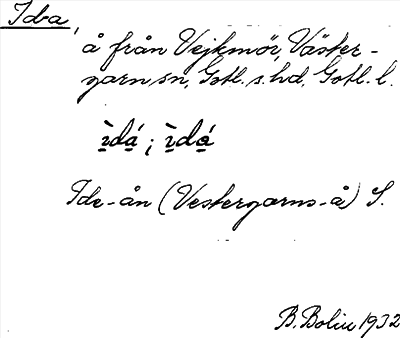 Ida,
å från Vejkmör, Väster-
garn sn, Gotl. s. hd, Gotl. l.
ìdá; ìdá
Ide-ån (Vestergarns-å) S.
B. Bolin 1932